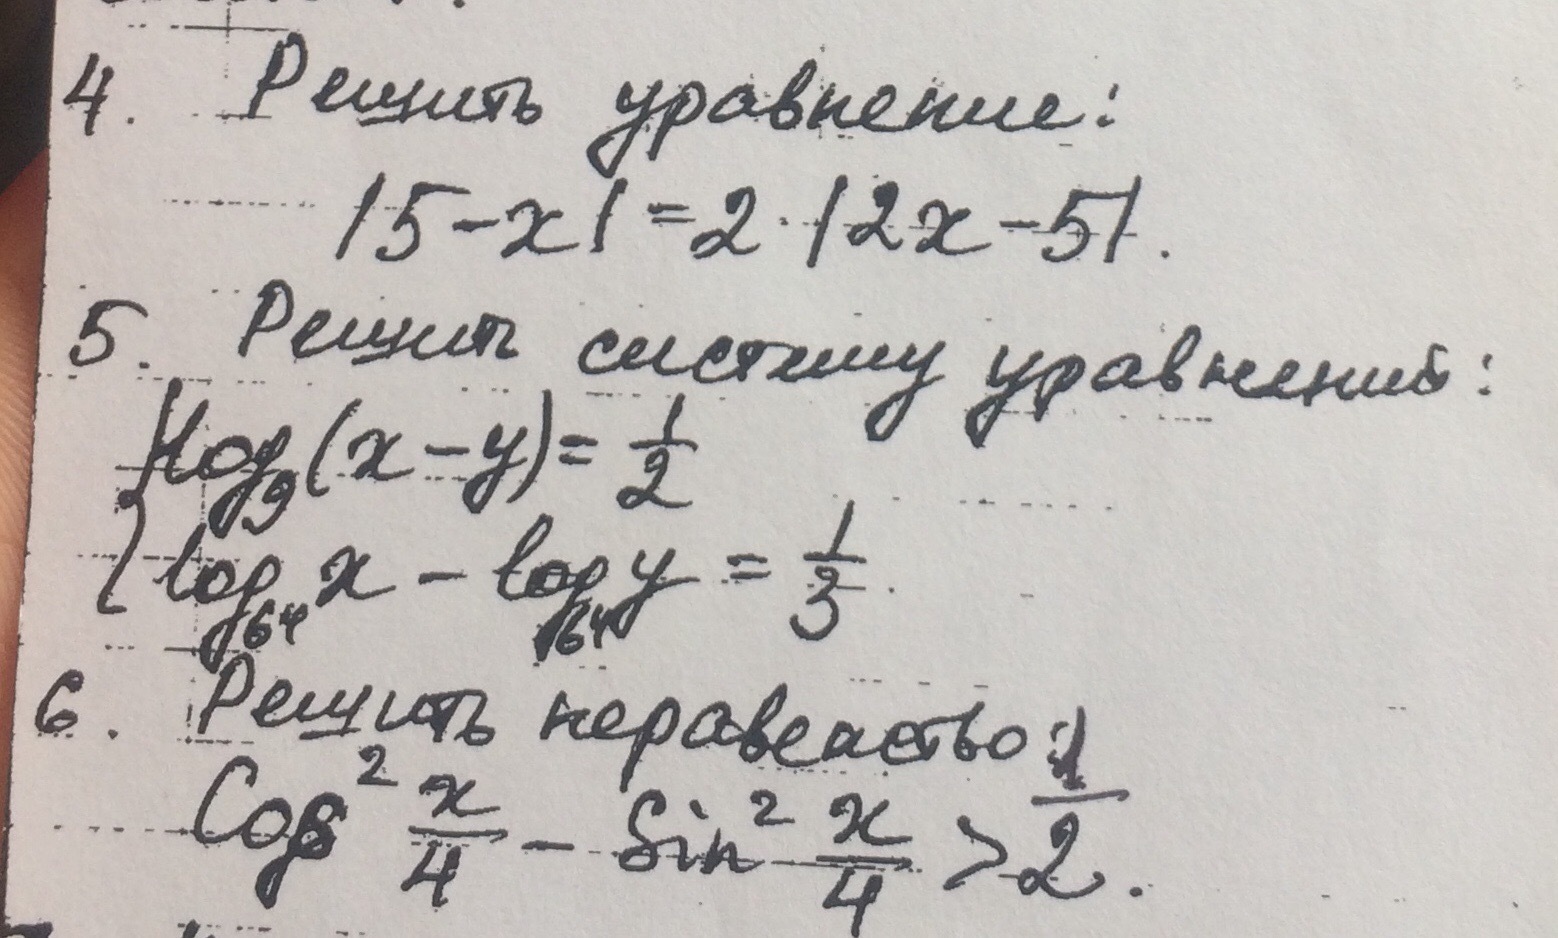 4. Решить уравнение:
|5-x| = 2·|2x-5|.
5. Решить систему уравнений:
{ log₉(x-y) = 1/2
log₆₄ x - log₆₄ y = 1/3.
6. Решить неравенство:
Cos² x/4 - Sin² x/4 > 1/2.